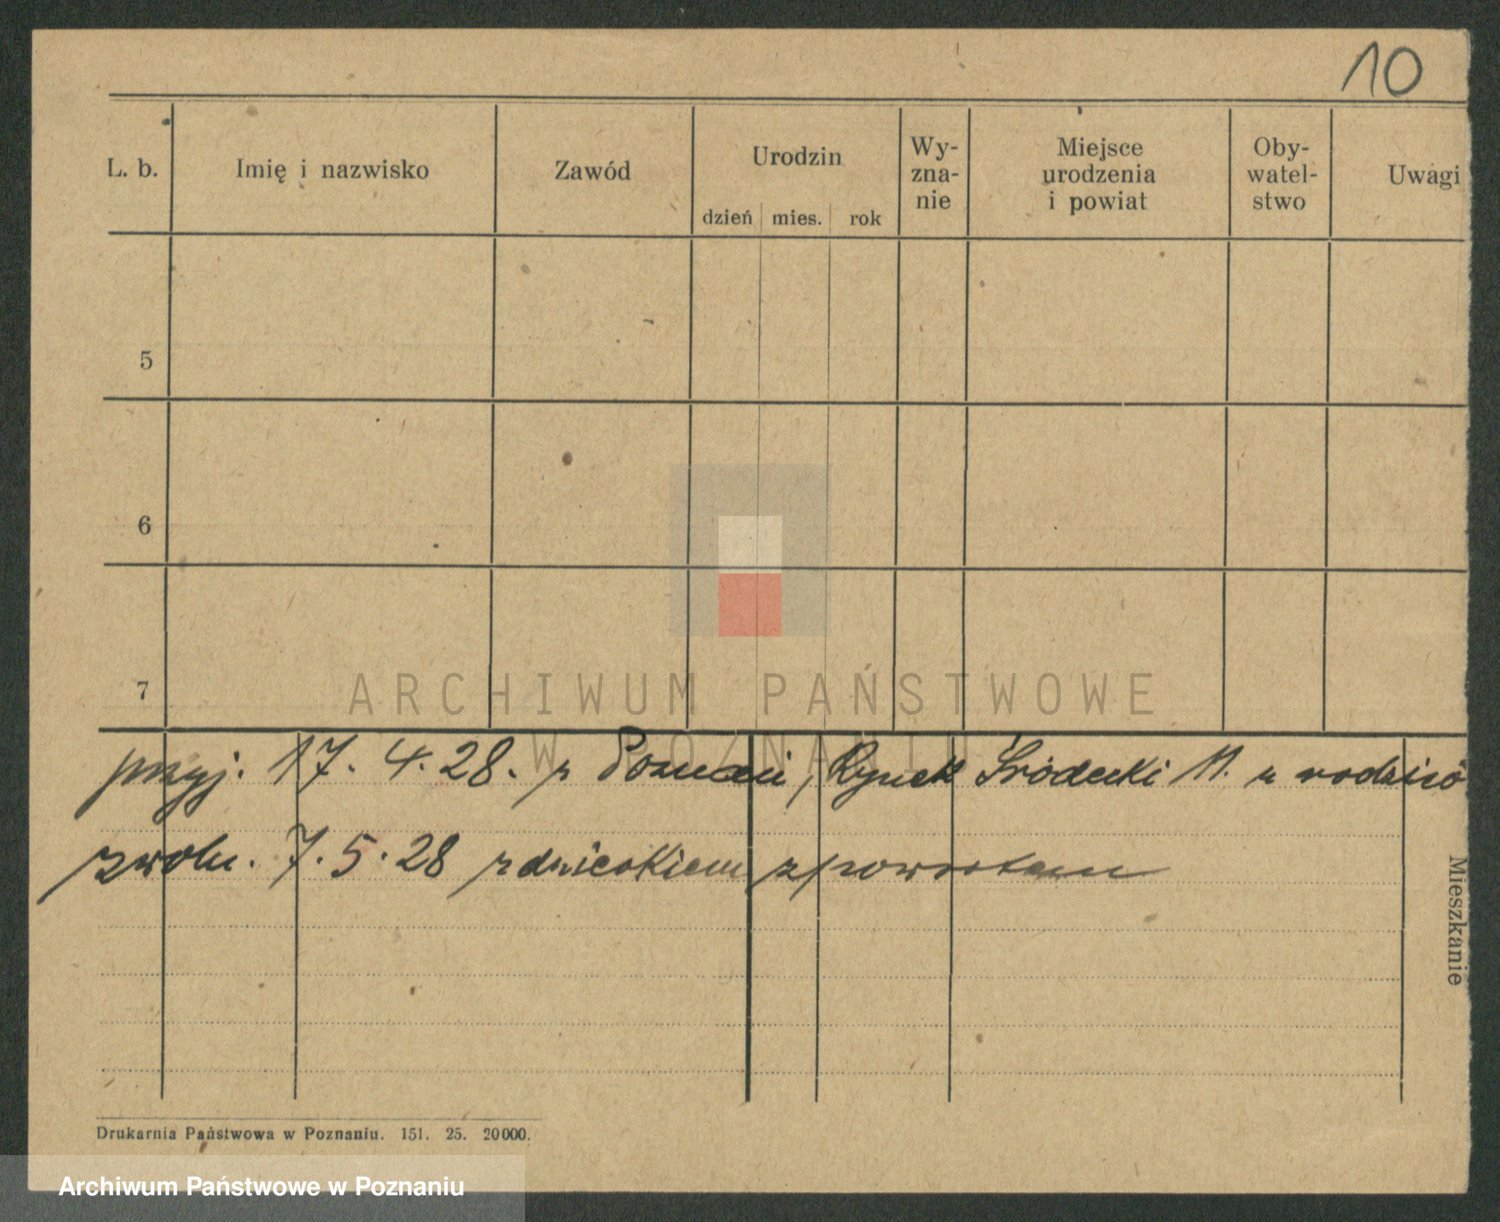 10
L. b. Imię i nazwisko Zawód Urodzin dzień mies. rok Wy-zna-nie Miejsce urodzenia i powiat Oby-watel-stwo Uwagi
5
6
7
ARCHIWUM PAŃSTWOWE
W POZNANIU
przyj. 17. 4. 28. z Poznani, Rynek Śródecki 11. u rodzicó
zwoln. 7. 5. 28 z dzieckiem z powrotem
Mieszkanie
Drukarnia Państwowa w Poznaniu. 151. 25. 20000.
Archiwum Państwowe w Poznaniu